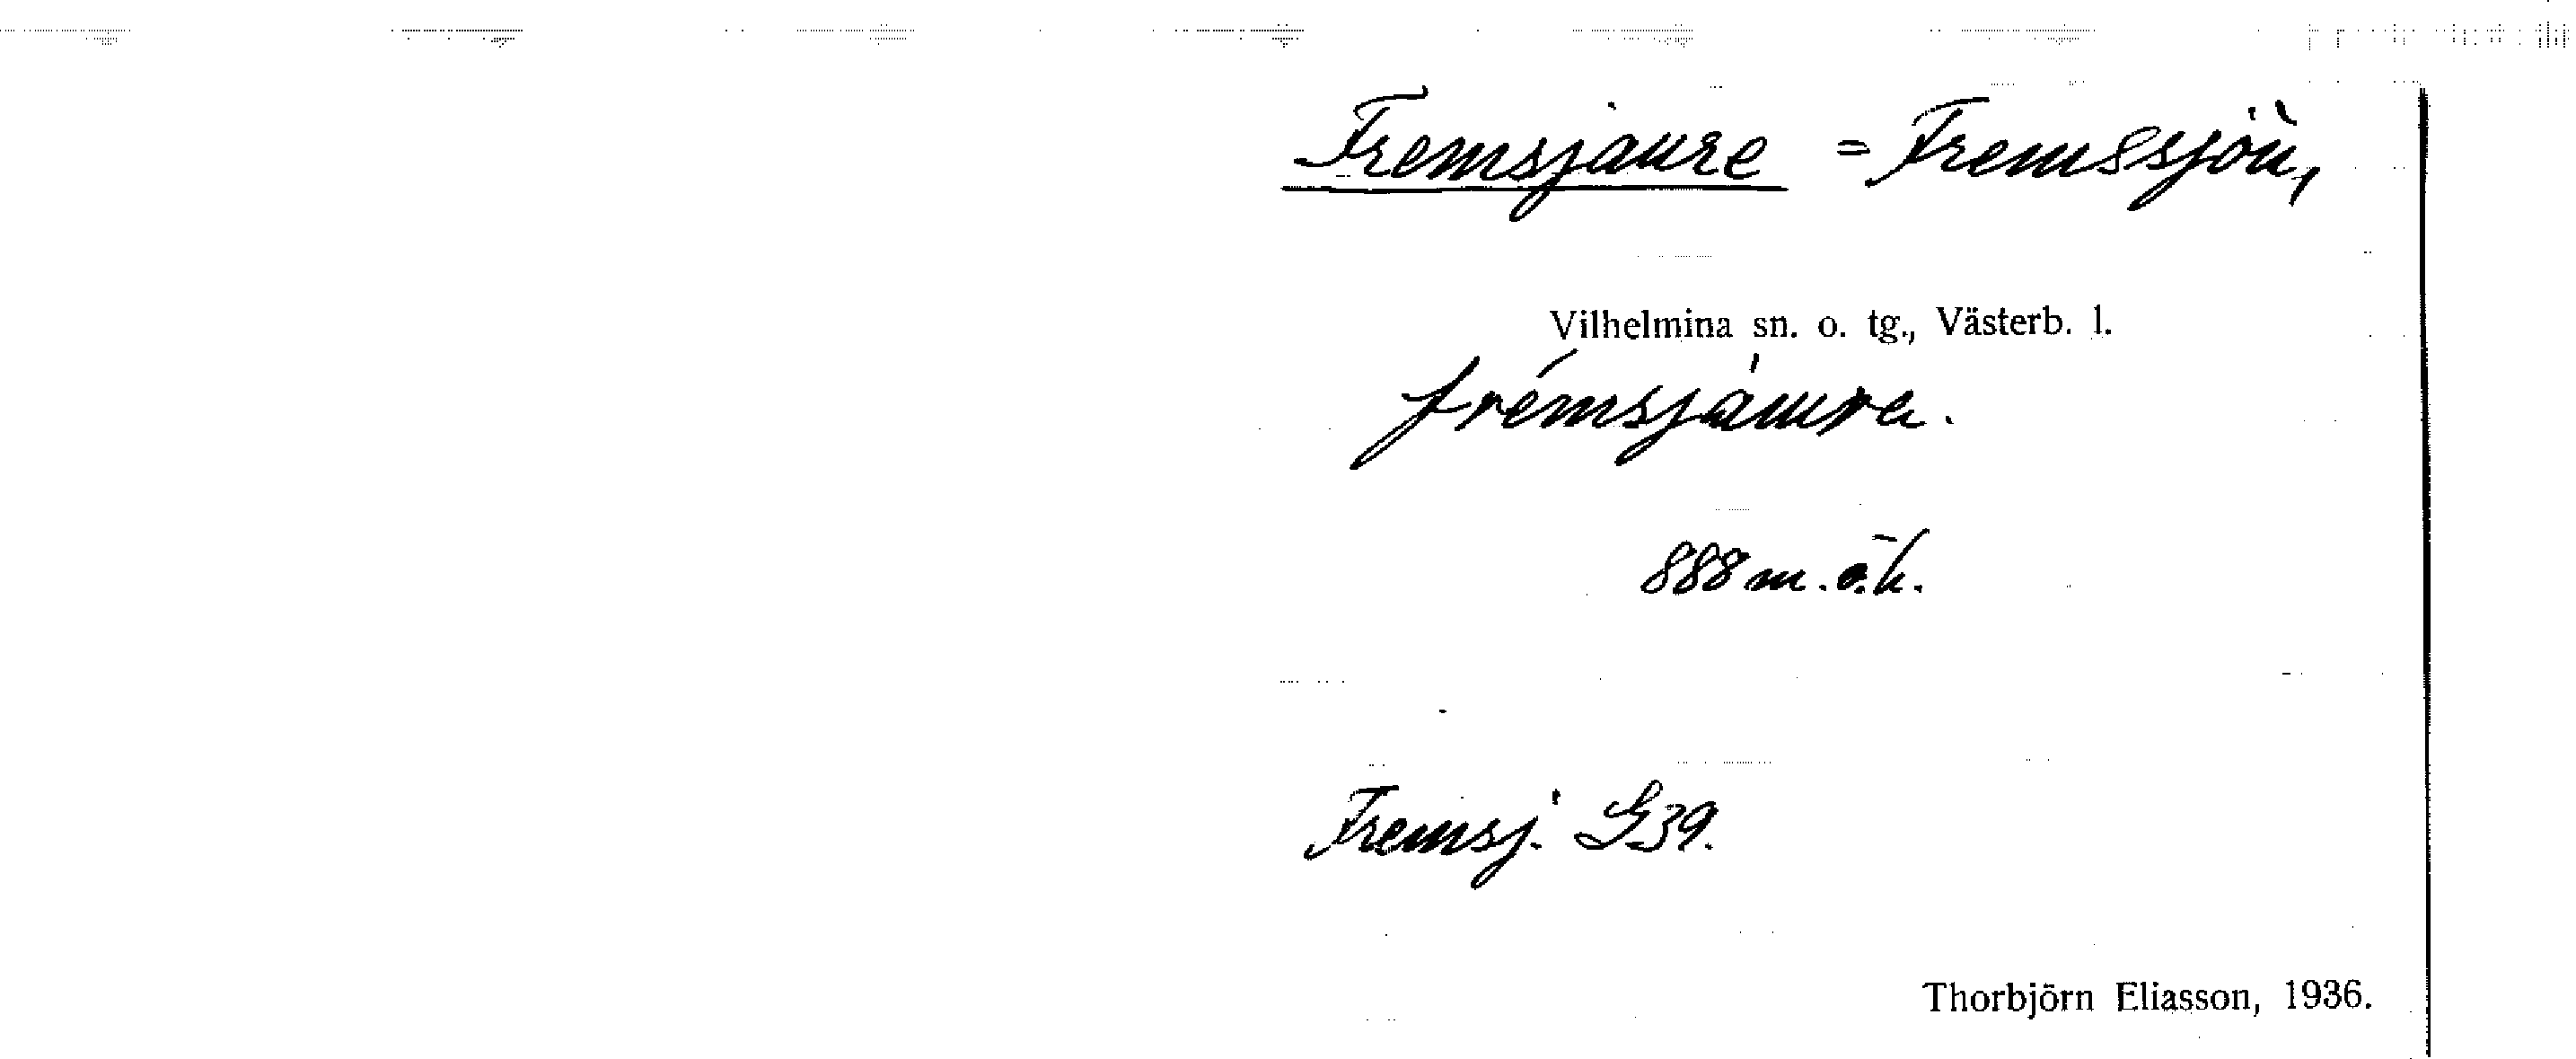 Fremsjaure = Fremssjön,
Vilhelmina sn. o. tg., Västerb. l.
frémsjàura.
888 m.ö.h.
Fremsj. G39.
Thorbjörn Eliasson, 1936.